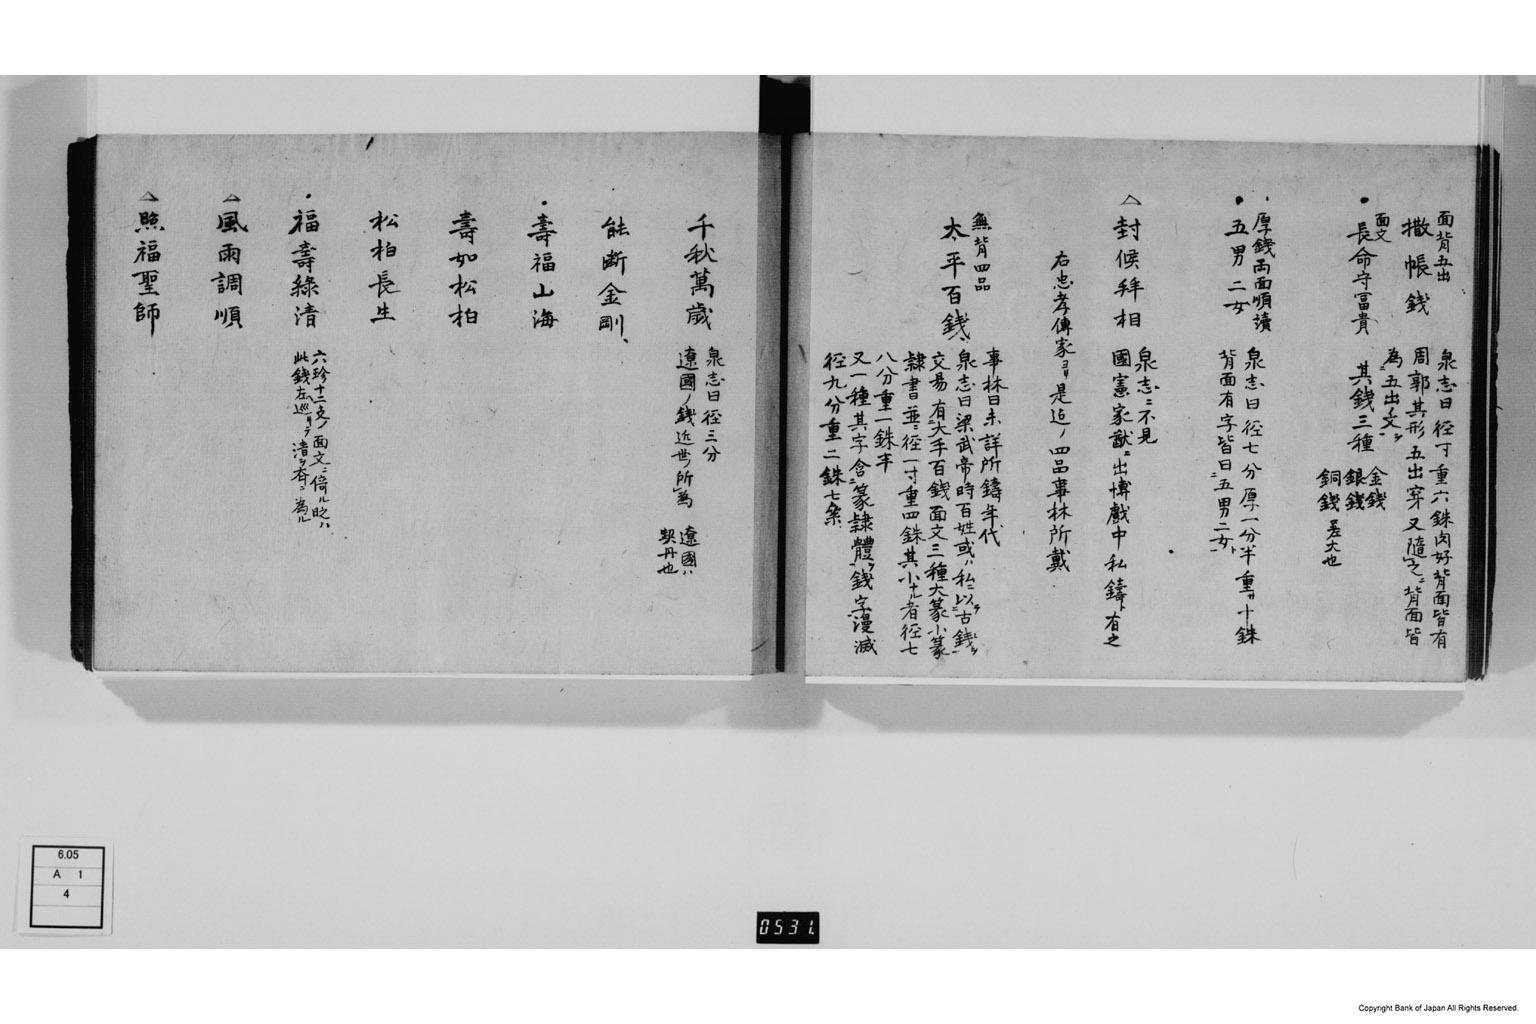 面背五出
撒帳錢
泉志曰徑寸重六銖肉好背面皆有
周郭其形五出穿又隨之背面皆
為五出文
面文
・長命守冨貴
其錢三種
金錢
銀錢
銅錢
差大也
・厚錢両面順讀
・五男二女
泉志曰径七分厚一分半重サ十銖
背面有字皆曰五男二女ト
△封候拜相
泉志ニ不見
國憲家猷ニ出博戯中私鑄ト有之
右忠孝傳家ヨリ是迄ノ四品事林所戴
無背四品
太平百錢
事林曰未詳所鑄年代
泉志曰梁武帝時百姓或ハ私ニ以古錢ヲ
交易有大平百錢面文三種大篆小篆
隷書並ニ徑一寸重四銖其小ナル者径七
八分重一銖半
又一種其字含篆隷體ヲ錢字漫滅
径九分重二銖七絫
千秋萬歳
泉志曰径三分
遼國ノ錢近世ノ所為
遼國ハ
契丹也
能断金剛
・壽福山海
壽如松柏
松柏長生
・福壽綠清
六珍十二支ノ面文ニ倚ル時ハ
此錢左巡リニテ清ヲ右ニ為ル
△風雨調順
△煕福聖師
6.05
A 1
4
0531
Copyright Bank of Japan All Rights Reserved.